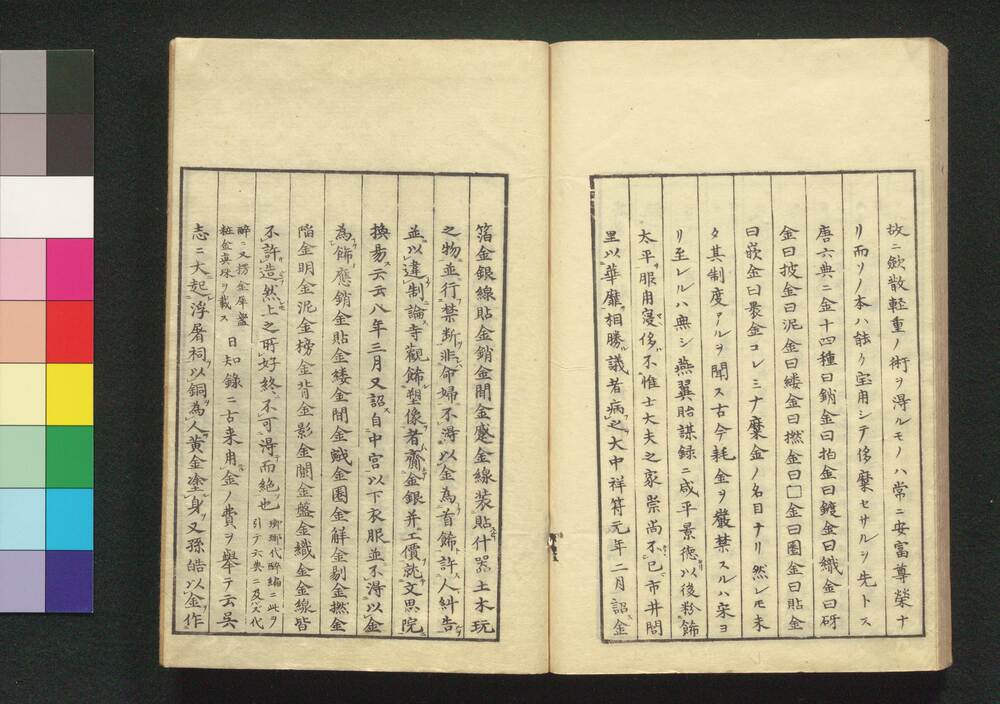 故ニ歛散軽重ノ術ヲ淂ルモノハ常ニ安富尊榮ナ
リ而ソノ本ハ能ク宝用シテ侈糜セサルヲ先トス
唐六典ニ金十四種曰銷金曰拍金曰鍍金曰織金曰砑
金曰披金曰泥金曰縷金曰撚金曰□金曰圏金曰貼金
曰嵌金曰裹金コレミナ糜金ノ名目ナリ然レモ未
タ其制度アルヲ聞ス古今耗金ヲ嚴禁スルハ宋ヨ
リ至レルハ無シ燕翼貽謀録ニ咸平景徳以後粉飾
太平服用寝侈不惟士大夫之家崇尚不已市井閭
里以華靡相勝議者病之大中祥符元年二月詔金
箔金銀線貼金銷金間金蹙金線装貼什器土木玩
之物並行禁断非命婦不淂以金為首飾許人糾告
並以違制論寺觀飾塑像者齎金銀并工價就文思院
換昜云云八年三月又詔自中宮以下衣服並不淂以金
為飾應銷金貼金縷金間金戭金圏金解金剔金撚金
陥金明金泥金榜金背金影金闌金盤金織金金線皆
不許造然上之所好終不可淂而絶也 瑯瑘代醉編ニ此ヲ引テ六典ニ及ハス代
醉ニ又拐金犀盤粧金真珠ヲ載ス 日知録ニ古来用金ノ費ヲ舉テ云呉
志ニ大起浮屠祠以銅為人黄金塗身又孫皓以金作